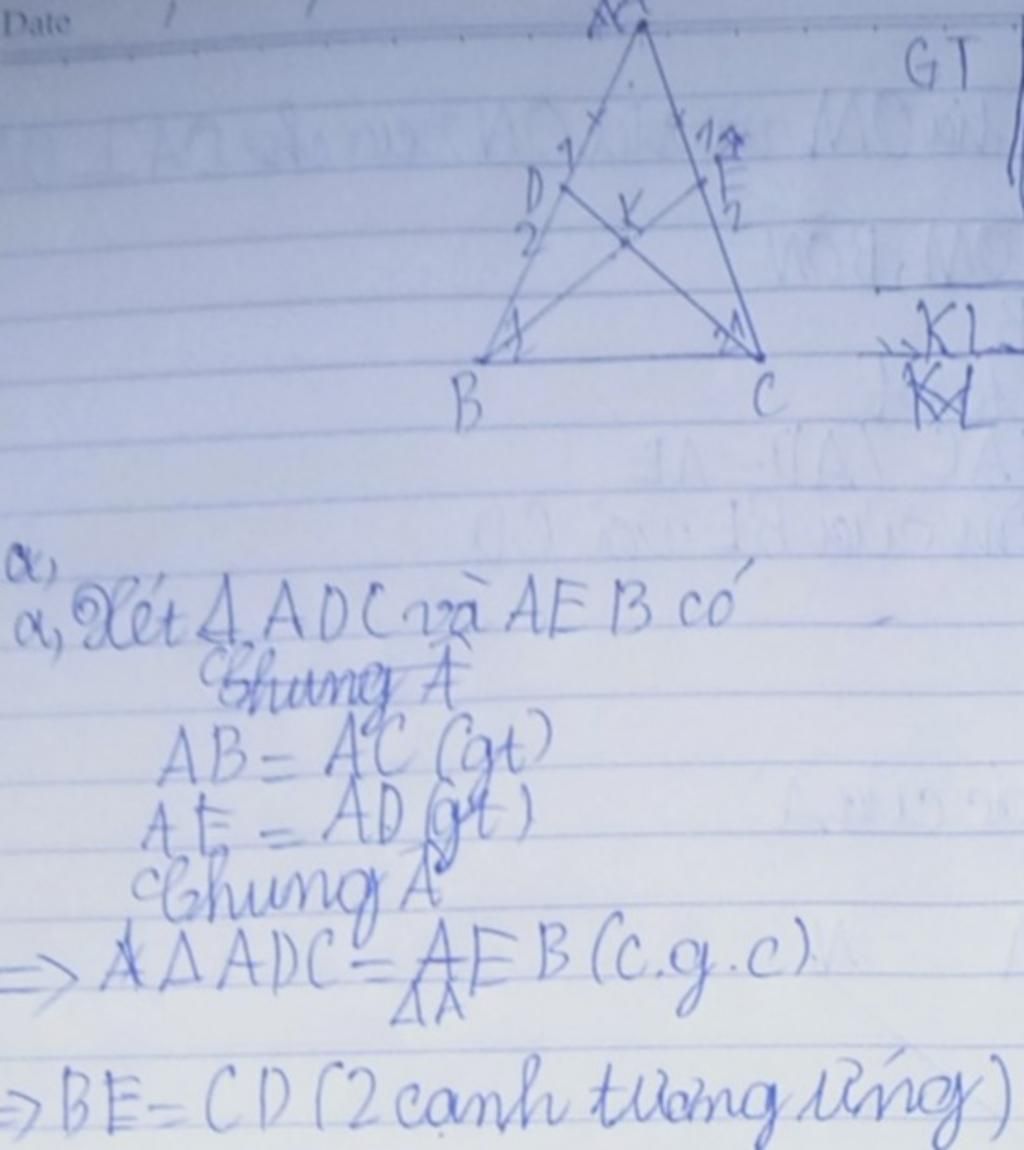 Date
A
GT
D
1
2
K
1
E
2
1
2
1
B
C
KL
a,
a, Xét Δ ADC và AEB có
Chung Â
AB = AC (gt)
AE = AD (gt)
Chung Â
=> Δ ADC = AEB (c.g.c)
ΔA
=> BE = CD (2 cạnh tương ứng)